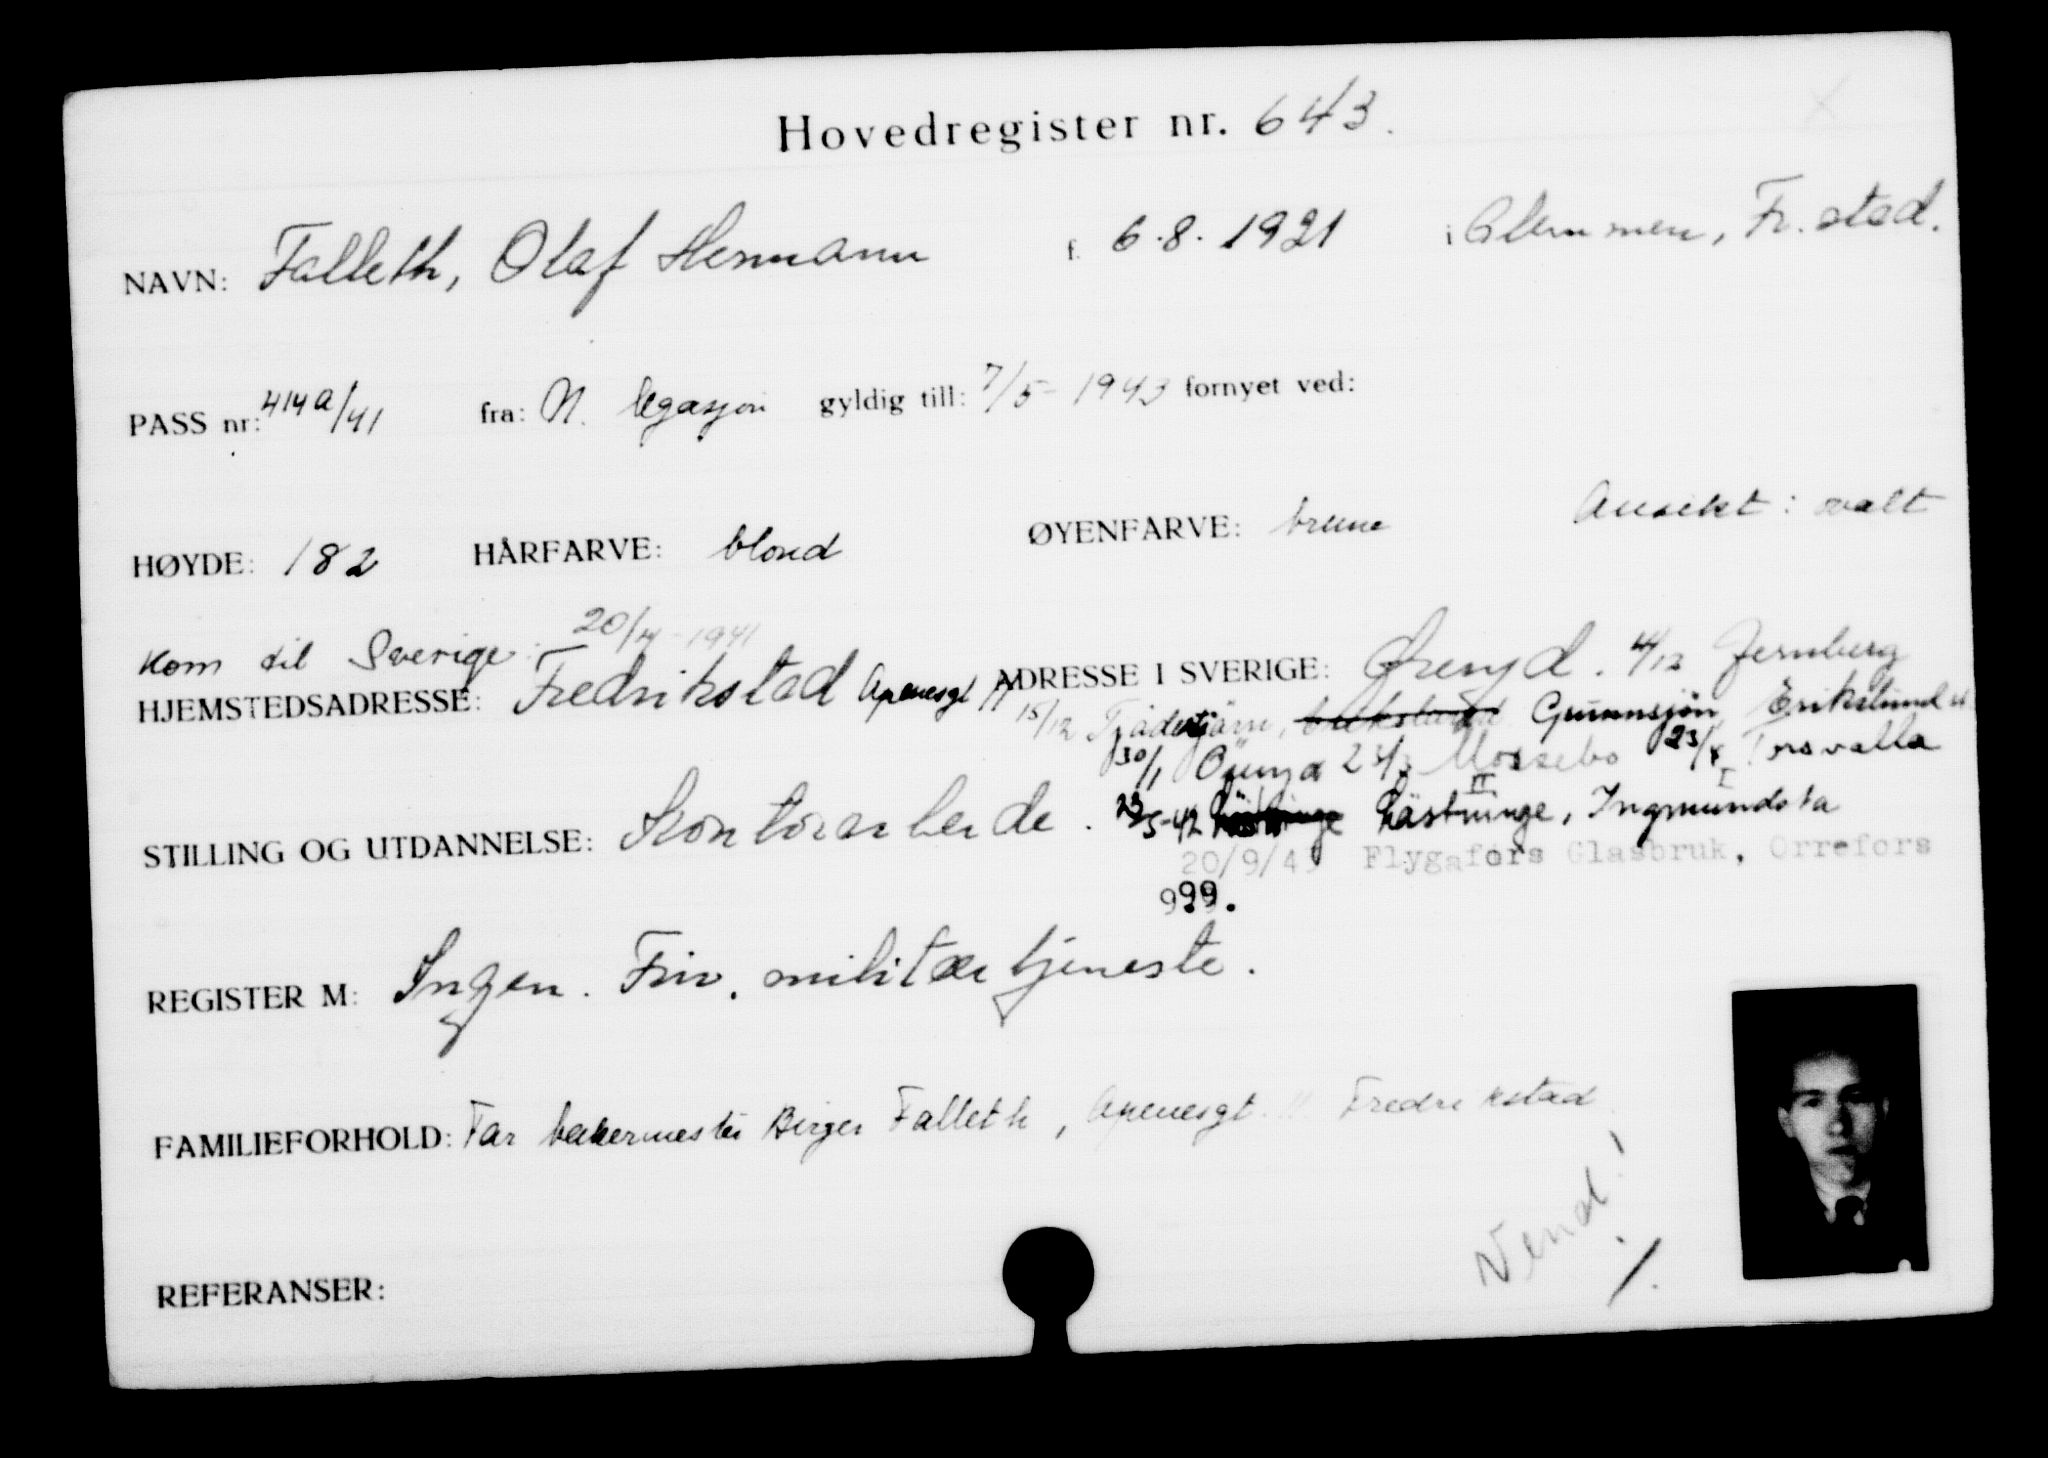 Hovedregister nr. 643.
NAVN: Falleth, Olaf Hermann f. 6.8.1921 i Glemmen, Fr.stad.
PASS nr: 414a/41 fra: N. legasjon gyldig till: 7/5-1943 fornyet ved:
HØYDE: 182 HÅRFARVE: blond ØYENFARVE: brune Ansikt: ovalt
Kom til Sverige: 20/4-1941
HJEMSTEDSADRESSE: Fredrikstad Apenesgt 11 ADRESSE I SVERIGE: Øreryd. 4/12 Jernberg
15/12 Gunnsjön, Erikslund
30/1 Öreryd 23/3 Mossebo 23/4 Torsvalla
STILLING OG UTDANNELSE: Kontorarbeide. 23/5-42 Lästringe, Ingmundsta
20/9/4 Flygafors Glasbruk, Orrefors
999.
REGISTER M: Ingen. Friv. militær tjeneste.
FAMILIEFORHOLD: Far bakermester Birger Falleth, Apenesgt. 11 Fredrikstad
Vend!
REFERANSER: